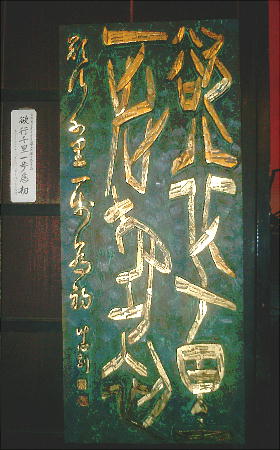 欲行千里
一歩為初
欲行千里一歩為初
欲行千里一歩為初